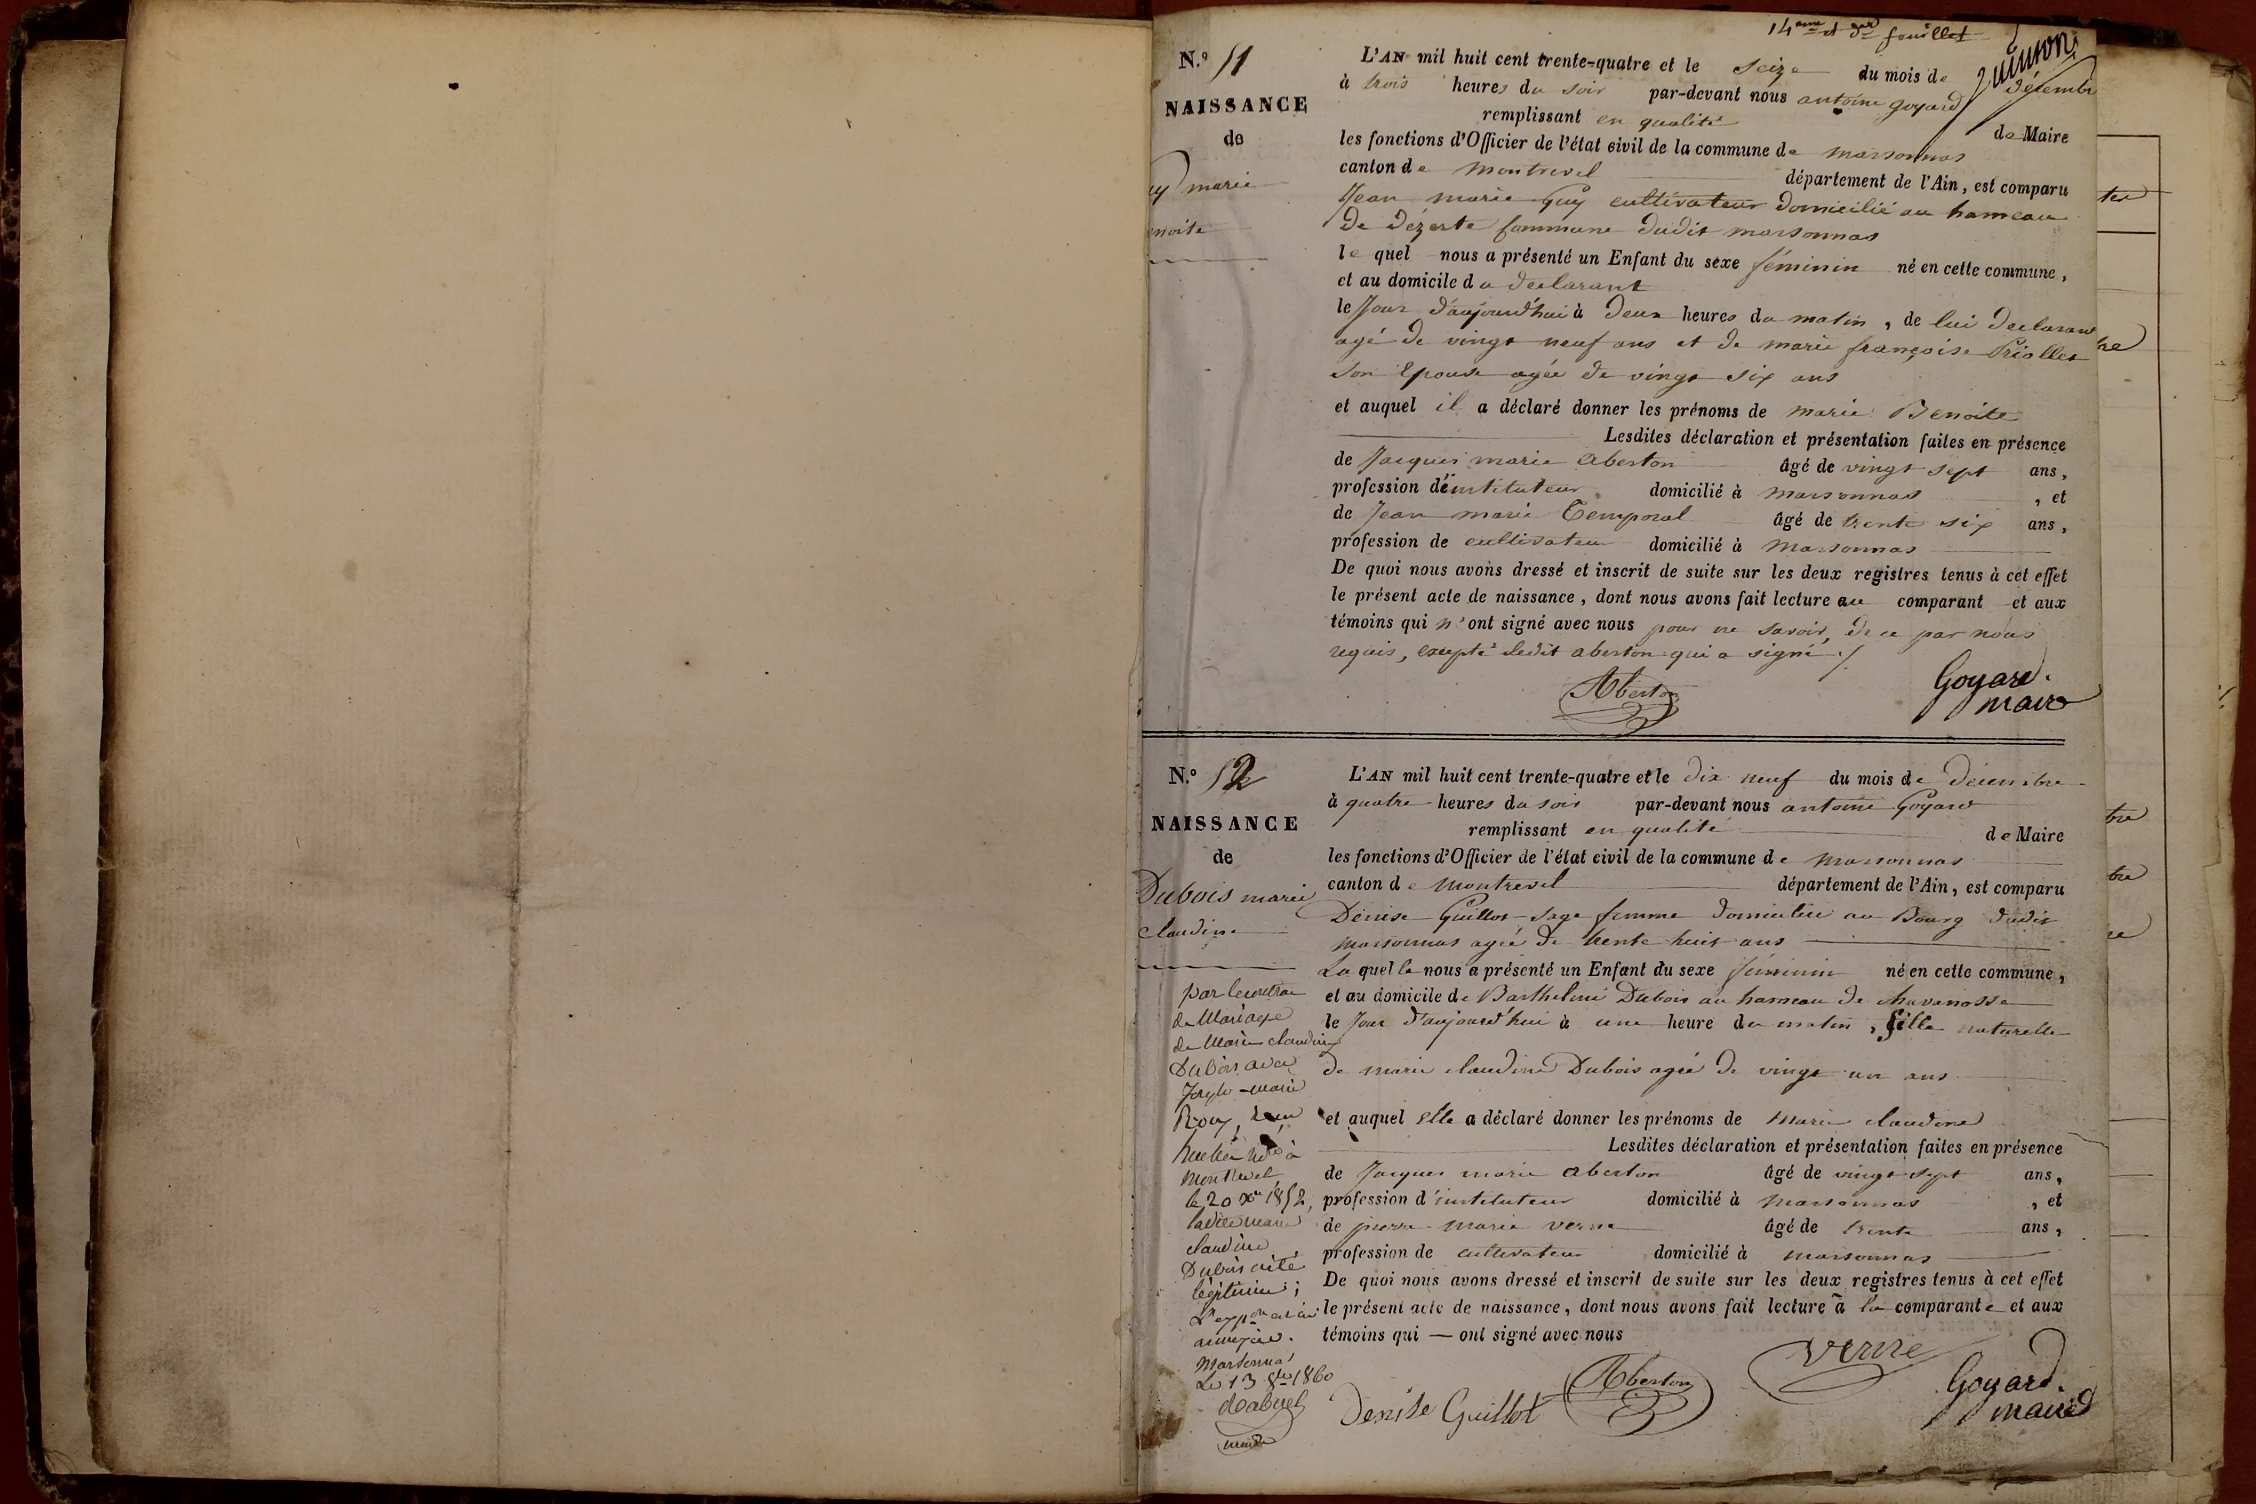 14eme et der feuillet
N.o 51
NAISSANCE
de
uy marie
enoite
L'AN mil huit cent trente-quatre et le seize du mois de décembr
à trois heures du soir par-devant nous antoine goyard
remplissant en qualité de Maire
les fonctions d'Officier de l'état civil de la commune de marsonnas
canton de montrevel département de l'Ain, est comparu
Jean marie Guy cultivateur domicilié au hameau
De Dézerte Commune dudit marsonnas
le quel nous a présenté un Enfant du sexe féminin né en cette commune,
et au domicile du declarant
le Jour d'aujourd'hui à Deux heures du matin, de lui declarant
agé de vingt neuf ans et de marie françoise Priollet
son Epouse agée de vingt six ans
et auquel il a déclaré donner les prénoms de marie Benoite
Lesdites déclaration et présentation faites en présence
de Jacques marie aberton âgé de vingt sept ans,
profession d'instituteur domicilié à marsonnas, et
de Jean marie Temporal âgé de trente six ans,
profession de cultivateur domicilié à marsonnas
De quoi nous avons dressé et inscrit de suite sur les deux registres tenus à cet effet
le présent acte de naissance, dont nous avons fait lecture au comparant et aux
témoins qui n'ont signé avec nous pour ne savoir, de ce par nous
requis, excepté ledit aberton qui a signé ./.
Aberton
Goyard.
maire
N.o 52
NAISSANCE
de
Dubois marie
claudine
L'AN mil huit cent trente-quatre et le dix neuf du mois de décembre
à quatre heures du soir par-devant nous antoine Goyard
remplissant en qualité de Maire
les fonctions d'Officier de l'état civil de la commune de marsonnas
canton de montrevel département de l'Ain, est comparu
Denise Guillot sage femme domiciliée au Bourg dudit
marsonnas agée de trente huit ans
La quelle nous a présenté un Enfant du sexe féminin né en cette commune,
et au domicile de Barthelmi Dubois au hameau de chavanosse
le Jour d'aujourd'hui à une heure du matin, fille naturelle
de marie claudine Dubois agée de vingt un ans
et auquel elle a déclaré donner les prénoms de marie claudine
Lesdites déclaration et présentation faites en présence
de Jacques marie aberton âgé de vingt sept ans,
profession d'instituteur domicilié à marsonnas, et
de pierre marie verne âgé de trente ans,
profession de cultivateur domicilié à marsonnas
De quoi nous avons dressé et inscrit de suite sur les deux registres tenus à cet effet
le présent acte de naissance, dont nous avons fait lecture à la comparante et aux
témoins qui — ont signé avec nous
verne
Aberton
Denise Guillot
Goyard.
maire
par le contrat
de Mariage
de Marie claudine
Dubois avec
Joseph-marie
Roux, reçu
à
Montrevel
le 20 Xbre 1852,
ladite marie
claudine
Dubois a été
légitimée;
annexée.
Marsonnas
Le 13 8bre 1860